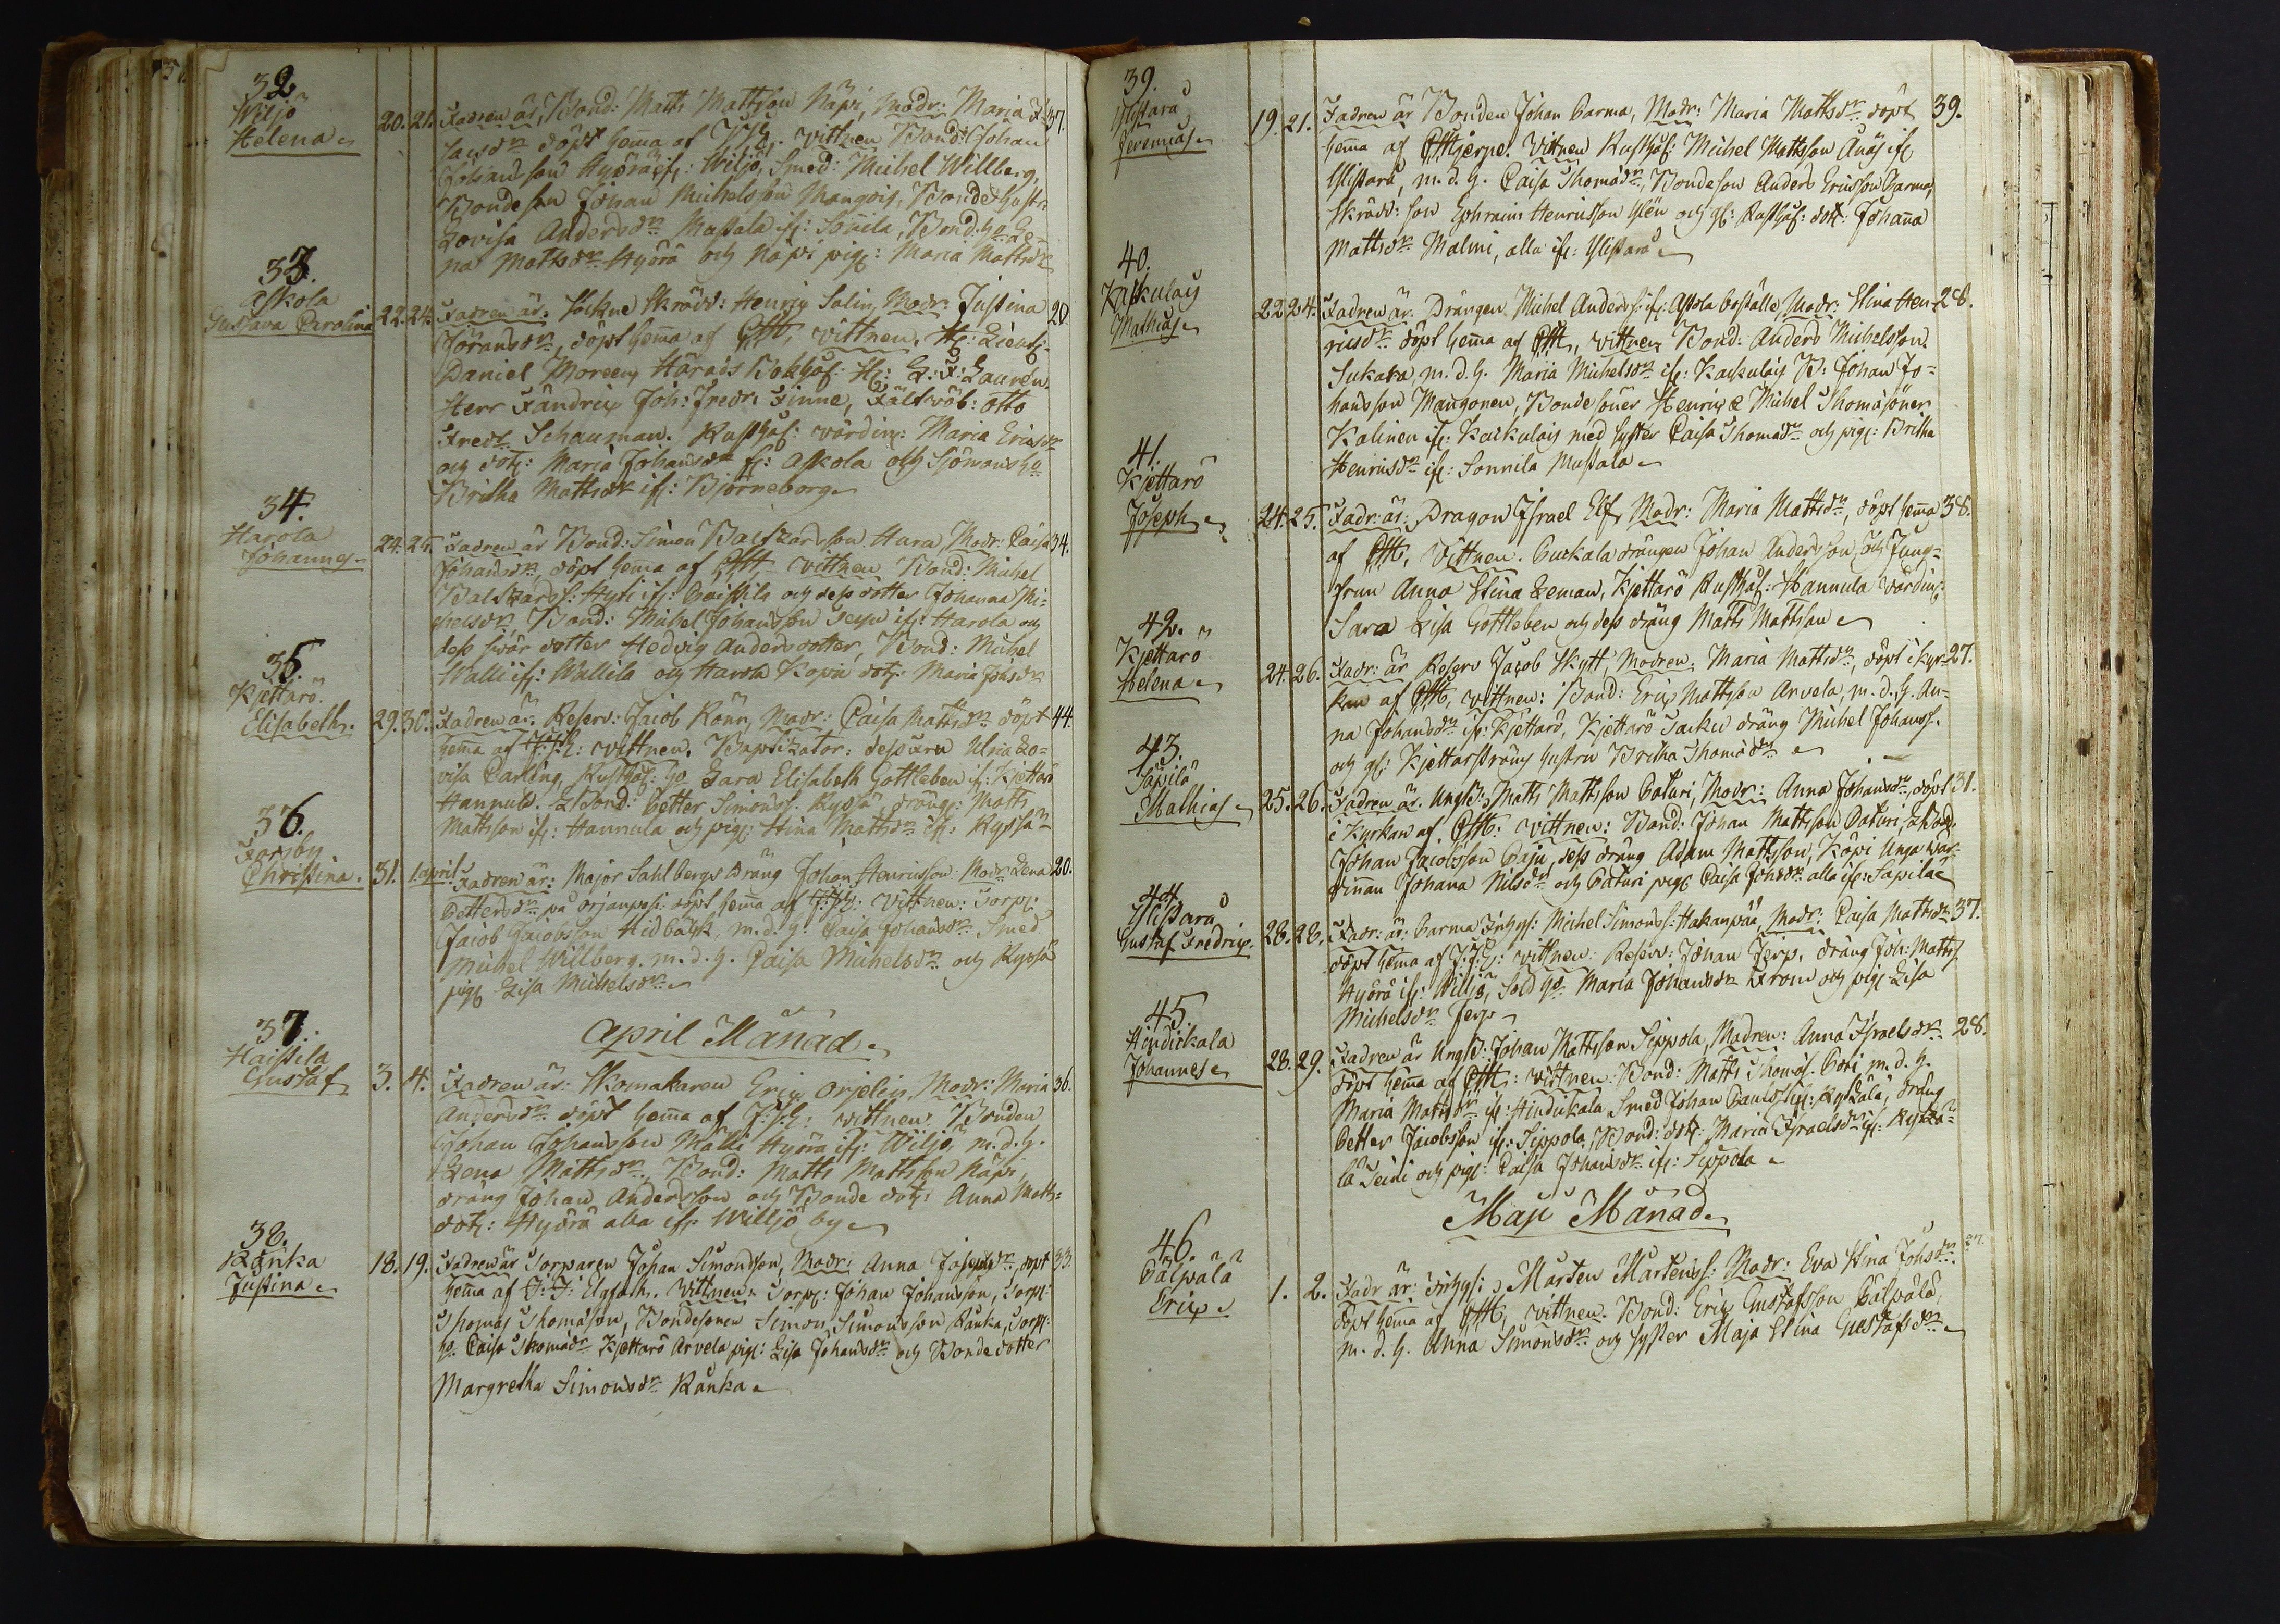 32.
Wiljö
Helena
20. 21. Fadren är, Bond: Matts Mattson Näpi, Modr: Maria 37.
dn döpt hema af JJE. vittnen Bond: Johan
Johansson Hyörä if: Wiljö, Smed: Michel Willberg,
Bondeson Johan Michelsson Mangois, Bonde Hustr:
Lovisa Andersdn Mattala if: Sonila, Bond: ho Le-
na Mattsdn Hyörä och Näpi pig: Maria Mattsdn
33.
Askola
Gustava Carolina
22. 24. Fadren är: Sockne Skrädd: Henric Salin, Modr: Justina 20.
Göransdn, döpt hema af CHH, vittnen. H: Lieut:
Daniel Moreen, Härads Bokhål: H: L: F: Lauren.
Herr Fändric Joh: Fredr: Finne, Fältväb: Otto
Fredr Schauman. Rusthål: värdin: Maria Ericsdn
och dot: Maria Johansdn if: Askola och Sjömans ho
Britha Mattsdn if: Björneborg
34.
Harola
Johannes
24. 25. Fadren är Bond: Simon Baltzarsson Hara, Modr: Caisa 34.
Johansdn, döpt hema af CHH vittnen Bond: Michel
Baltzars: Hyti if: Caissila och dess dotter Johanna Mi-
chelsdn Bond: Michel Johansson Seppu if: Harola och
dess svär dotter Hedvig Andersdotter, Bond: Michel
Walli if: Wallila och Harola Kopu dot: Maria Johsdn
35.
Kjettarö.
Elisabeth.
29. 30. Fadren är: Reserv: Jacob Rönn, Modr: Caisa Mattsdn döpt 44.
hema af J: J: E: vittnen. Baptizator: dess Ulrica Lo-
visa Carling, Rusthål: ho Sara Elisabeth Gottleben if: Kjettarö
Hannula. Bond: Petter Simons: Ryssä, dräng: Matts
Mattson if: Hannula och pig: Stina Mattsdn if: Ryssä
36.
Forsby
Christina.
31. 1. april Fadren är: Major Sahlbergs dräng Johan Henricsson. Modr Lena 20.
Pettersdn på döpt hema af J: J: E: vittnen: Torp:
Jacob Jacobsson Hidbäck, m. d. h. Caisa Johansdn Smed
Michel Willberg. m. d. h. Caisa Michelsdn och Ryssä
pig Lisa Michelsdn
April Månad
37.
Haissila
Gustaf
3. 4. Fadren är: Skomakaren Eric Orjelin, Modr: Maria 36.
Andersdn döpt hema af J: J: E: vittnen Bonden
Johan Johansson Mälli Hyöra if: Wiljö, m. d. h.
Lena Mattsdn, Bond: Matts Mattson Näpi,
dräng Johan Andersson och Bonde dot: Anna Matts-
dot: Hyörä alla if: Willjö by
38.
Kanka
Justina
18. 19. Fadren är Torparen Johan Simonsson, Modr: Anna Josephsdn döpt 33.
hema af J: J: Elgfoth. Vittnen: Torp: Johan Johansson, Torp:
Thomas Thomasson, Bondesonen Simon Simonsson Kanka, Torp:
ho Caisa Thomasdn Kjettarö Arvela, pig: Lisa Johansdn och Bonde dotter
Margretha Simonsdn Kanka
39.
Ylistarå
Jeremias
19. 21. Fadren är Bonden Johan Parma, Modr: Maria Mattsdn döpt 39.
hema af CHHjerpe. Vittnen Rusthål: Michel Mattsson Anäs if:
Ylistarå, m. d. h. Caisa Thomasdn, Bondeson Anders Ericsson Parma,
Skrädd: son Ephraim Henricsson Ylén och gl: Rusthål: dot: Johana
Mattsdn Malmi, alla if: Ylistarå
40.
Kaskulais
Mathias
22 24. Fadren är: Drängen Michel Anders: if: Askola boställe, Modr: Stina Hen- 28.
ricsdn döpt hema af CHH, vittnen Bond: Anders Michelsson
Sukaka, m. d. h. Maria Michelsdn if: Kaskulais B: Johan Jo-
hansson Mangonen, Bonde söner Henric & Michel Thomasöner
Kalinen if: Kaskulais med syster Caisa Thomasdn och pig: Britha
Henricsdn if: Sonnila Mattala
41.
Kjettarö
Joseph
24. 25. Fadr: är: Dragon Israel Elf, Modr: Maria Mattsdn, döpt hema 38.
af CHH, Vittnen. Puckala drängen Johan Andersson och Jung-
frun Anna Stina Zeman, Kjettarö Rusthål: Hannula värdin:
Sara Lisa Gottleben och dess dräng Matts Mattson
42.
Kjettarö
Helena
24. 26. Fadr: är Reserv Jacob Skytt, Modren: Maria Mattsdn, döpt i kyr- 27.
kan af CHH, vittnen: Bond: Eric Mattson Arvela, m. d. h. An-
na Johansdn if: Kjettarö, Kjettarö Jacku dräng Michel Johans:
och gl: Kjettarströms hustru Britha Thomasdn
43.
Sapilå
Mathias
25. 26. Fadren är. Ung B: Matts Mattson Paturi, Modr: Anna Johansdn, döpt 31.
i Kyrkan af CHH: vittnen: Bond: Johan Mattson Paturi,
Johan Jacobsson Paju, dess dräng Adam Mattsson, Köpi Unga vär-
dinnan Johana Nilsdn och Paturi pig Caisa Johsdn alla if: Sapilå
44.
Ylistarå
Gustaf Fredric
28. 28. Fadr: är: Parma Inhys: Michel Simons: Hakanpää, Modr: Caisa Mattsdn 37.
döpt hema af J: J: E: vittnen: Reserv: Johan Jerp. dräng Joh: Matts:
Hyörä if: Willjö, Sold ho Maria Johansdn From och pig Lisa
Michelsdn Jerp
45.
Hindickala
Johannes
28. 29. Fadren är Ung B: Johan Mattsson Sippola, Modren: Anna Israelsdn 28.
döpt hema af CHH: vittnen: Bond: Matts Thomas: Pori m. d. h.
Maria Mattsdn if: Hindickala Smed Johan Pauls: if: Rytzälä, dräng
Petter Jacobsson if: Sippola, Bond: dot: Maria Israelsdn if: Rytzä-
lä Seini och pig: Caisa Johansdn if: Sippola
Maji Månad
46.
Pälpälä
Eric
1. 2. Fadr är: Inhys: Mårten Mårtens: Modr: Eva Stina Johsdn 27.
döpt hema af CHH, vittnen. Bond: Eric Gustafsson Pälpälä,
m. d. h. Anna Simonsdn och syster Maja Stina Gustafsdn